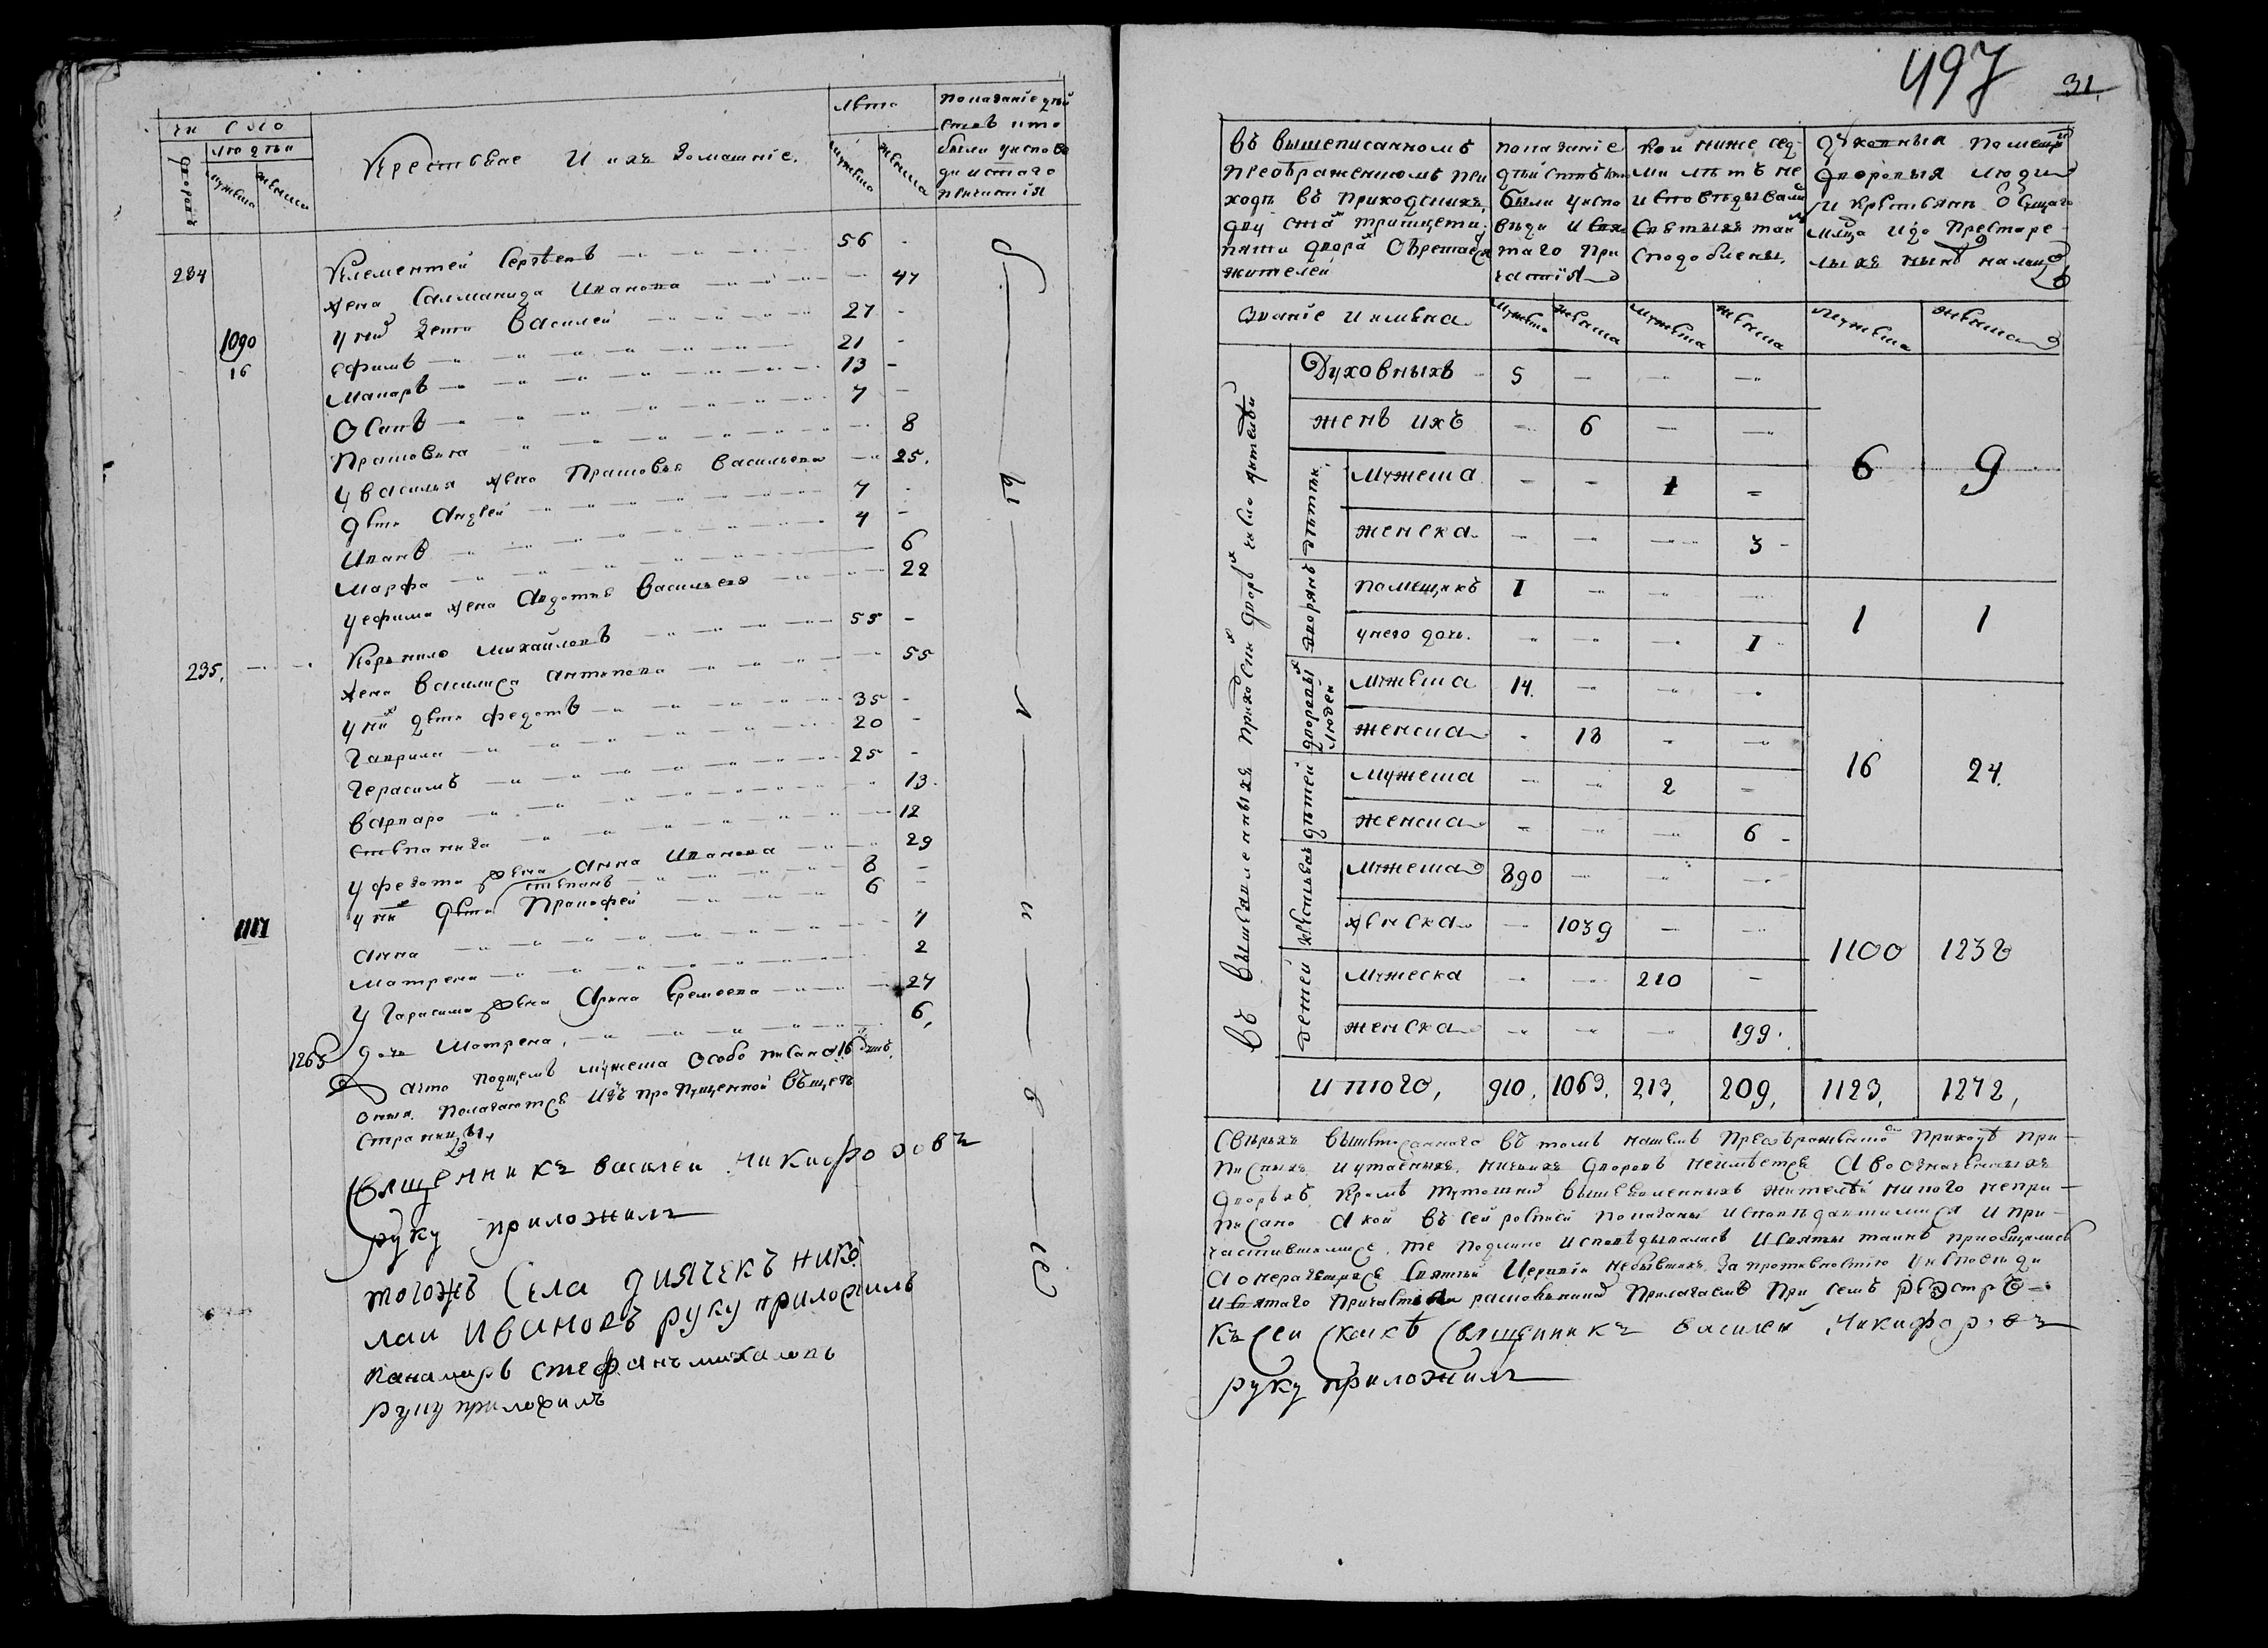 Число
дворовъ
людѣй
мужеска
женска
Крестьяне И ихъ домашнїе.
лѣто
мужеска
женска
Показанїе дѣй
ствъ кто
были у испове
ди и стаго
причастїя
234 Клементей Сергѣевъ 56 -
жена Саламанида Иванова - 47
у них дети Василей 27 -
1090 Ефимъ 21 -
16 Макаръ 13 -
Осипъ 7 -
Прасковья - 8
у василья жена Прасковья васильева - 25.
дѣти Андрей 7 -
Иванъ 4 -
Марфа - 6
у ефима жена Авдотья Васильева - 22
235. Корънило Михайловъ 55 -
жена Василиса Антипова - 55
у них дѣти Федотъ 35 -
Гаврила 20 -
Герасимъ 25 -
варвара - 13.
степанида - 12
у федота жена Анна Иванова - 29
степанъ 8 -
у них дѣти Пракофей 6 -
1117 Анна - 7
Матрена - 2
У Гарасима жена Арина Еремеева - 27
дочь Матрена, - 6,
1265
А что подщемъ мужеска Особо писано 16 душъ,
оныя полагаются Изъ пропущенной въщетѣ
страницы,
23
Священникъ василей никифоровъ
руку приложилъ
тогожъ Села диячекъ нико
лаи Ивановъ руку приложилъ
панамарь стефанъ михаловъ
руку приложилъ
б
ы
л
и
в
се
497
31.
въ вышеписанномъ
преображенскомъ при
ходѣ въ приходских
двустах тритцети
пяти дворах Обретается
жителей
показанїе
дѣйствъ кто
были у испо
веди и свя
таго при
частїя
кои ниже сед
ми лѣтъ не
исповедывали
Святыхъ таин
сподоблены.
духовныя помещи
дворовыя люди
и крестьянъ общаго
млдца и до престаре
лыхъ мужескъ на лицо
званїе и имена.
мужеска
женска
мужеска
женска
мужеска
женска
въ вышеявленныхъ приходскихъ дворѣхъ жители
Духовныхъ 5 - - -
женъ ихъ - 6 - -
дѣтѣй
мужеска - - 1 -
женска - - - 3 -
6 9
дворянъ
помещикъ 1 - - -
у него дочь. - - - 1
1 1
дворовых людей
мужеска 14. - - -
женска - 18 - -
дѣтей
мужеска - - 2 -
женска - - - 6 -
16 24.
крестьянъ
мужеска 890 - - -
женска - 1039 - -
детей
мужеска - - 210 -
женска - - - 199.
1100 1238
итого, 910, 1063, 213, 209, 1123, 1272,
Сверхъ вышеписанного въ томъ нашемъ Преображенском Приходѣ при-
писныхъ и утаеныхъ никакихъ дворовъ неимѣется А въ означенныхъ
дворѣхъ Кромѣ тутошних вышеявленныхъ жителей никого непри-
писано А кои въ сей росписи показаны исповѣдавшимися И при-
частившимися те подлино исповѣдывались И святы таинъ приобщались
А о нерачащихся святѣй Церкви небывшихъ за противностїю у исповеди
и святаго Причастїя расколниках Прилагаемъ при семъ реэстръ -
къ сеи скаскѣ священникъ василей никифоровъ
руку приложилъ